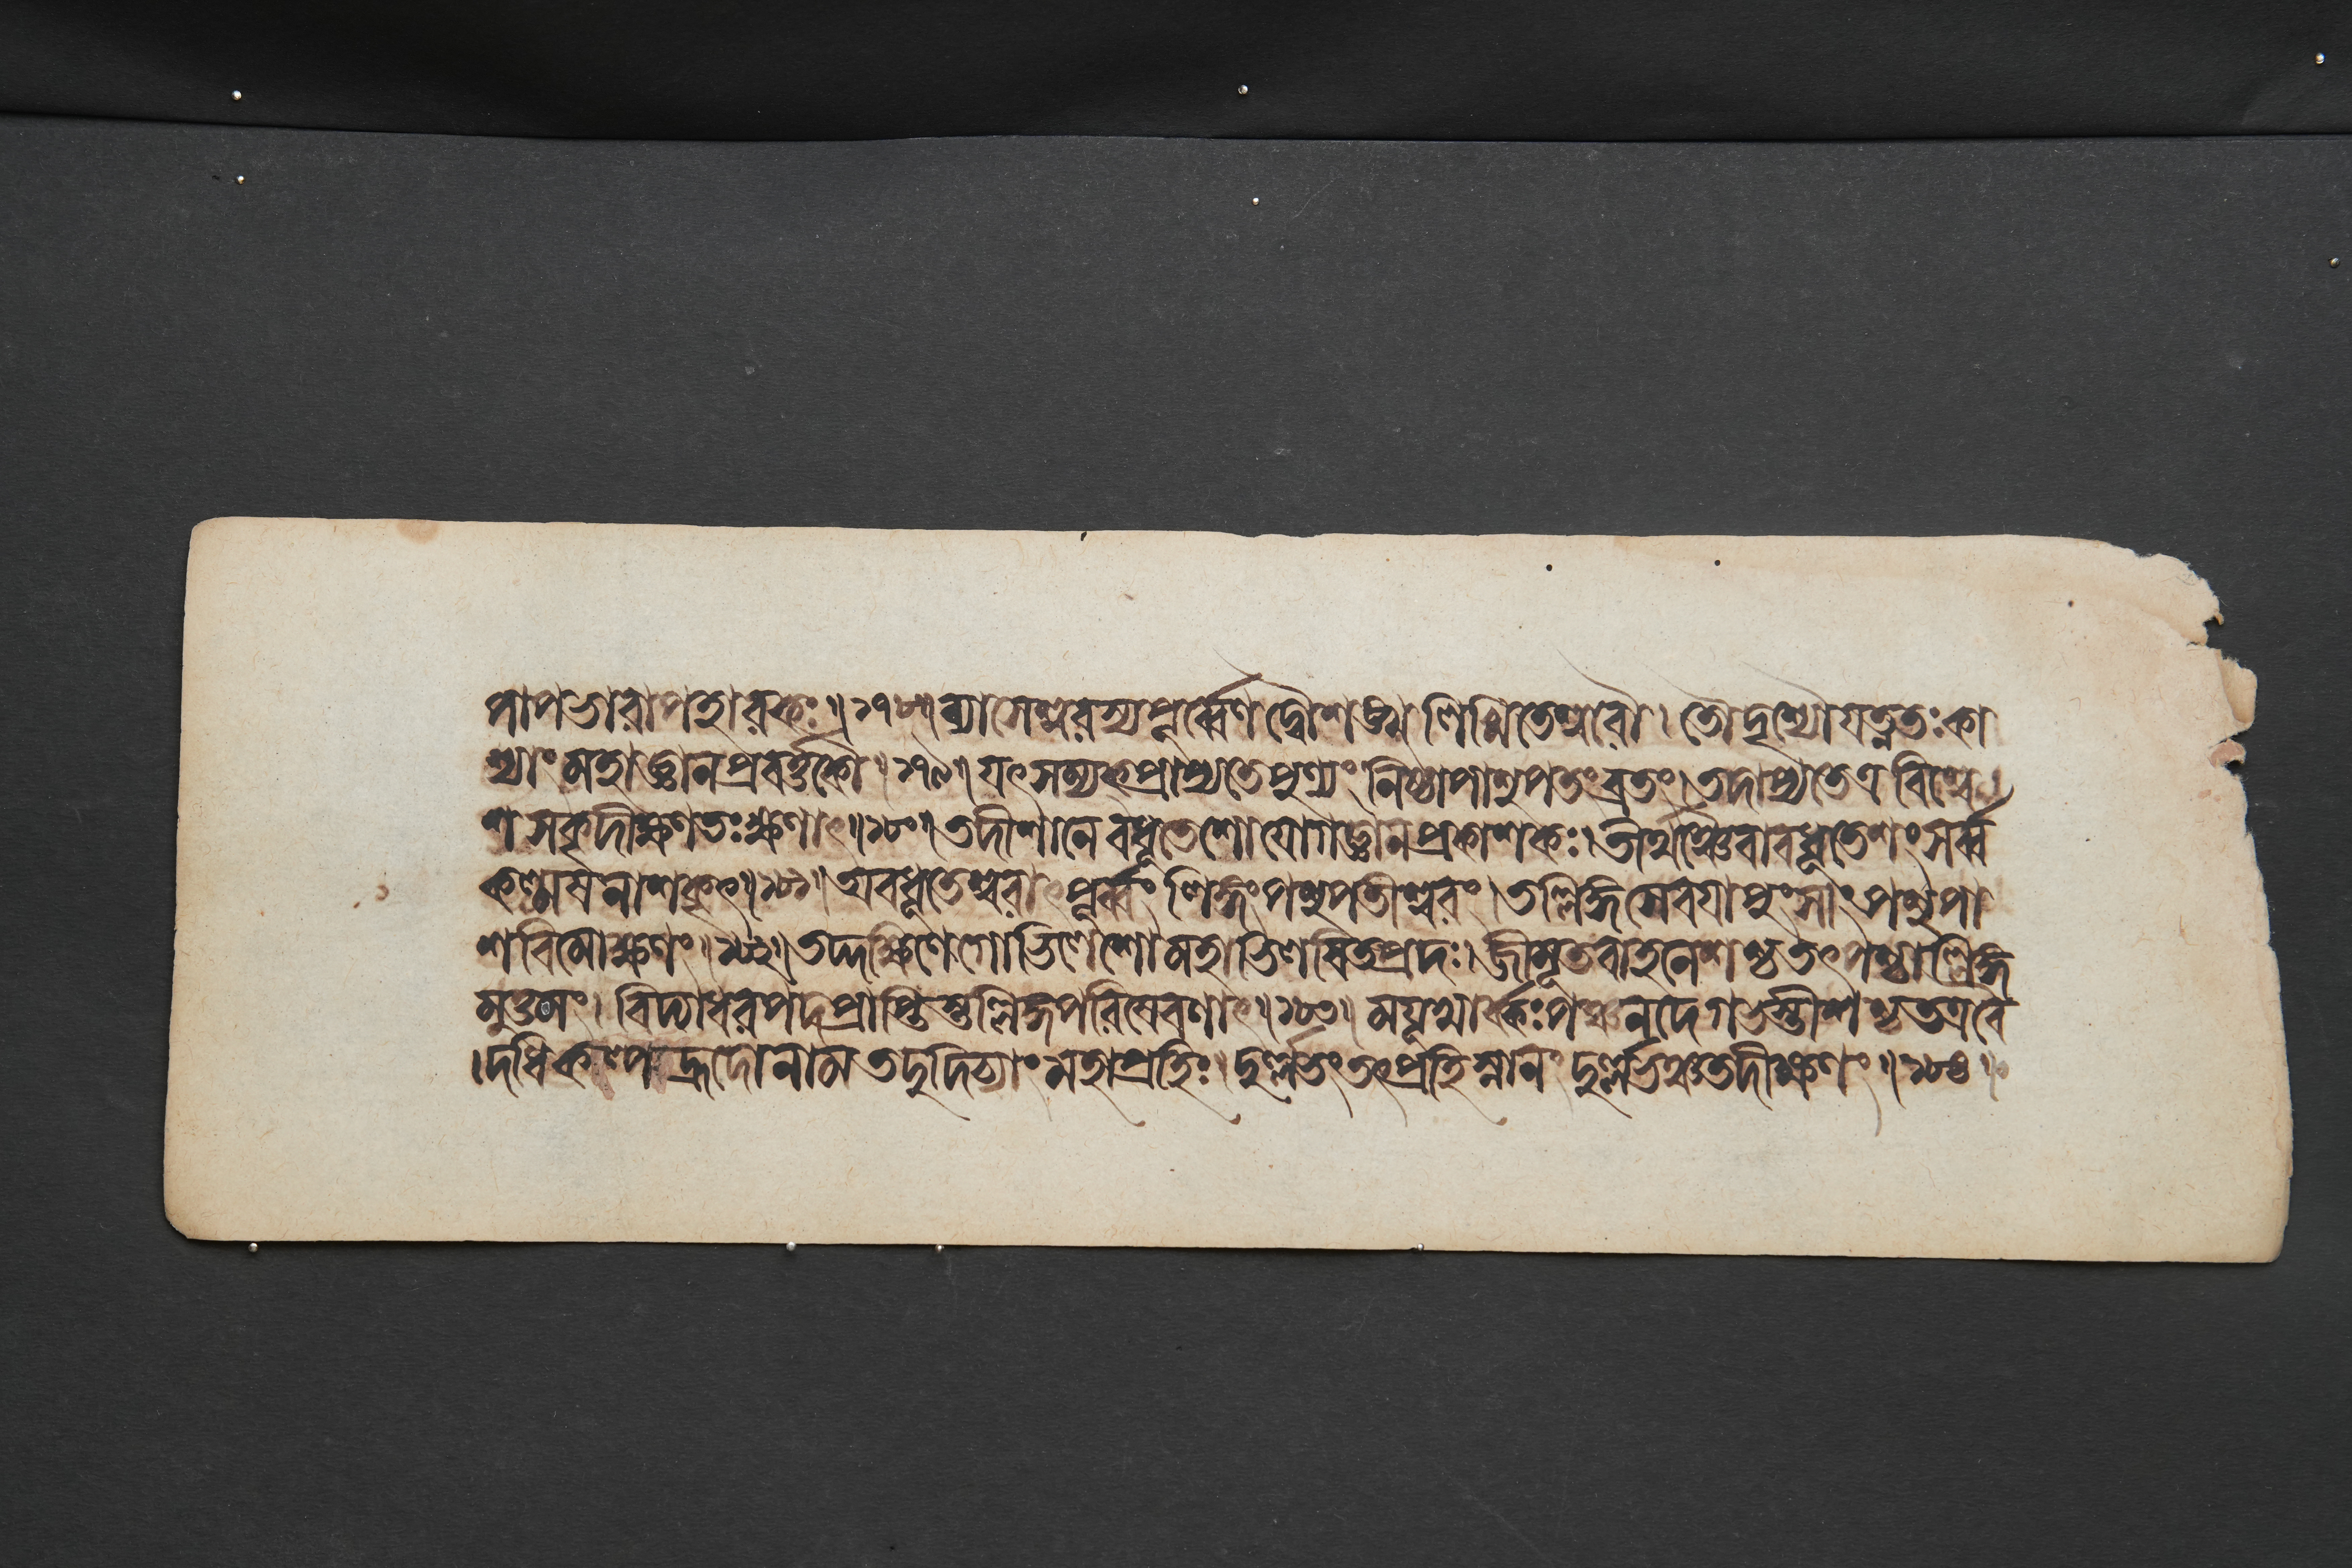 পাপভারাপহারকঃ॥১৭৮॥ব্যাসেশ্বরস্যপূর্ব্বেণদ্বৌশঙ্খলিখিতেশ্বরৌ।তৌদৃশ্যৌযত্নতঃকা
শ্যাংমহাজ্ঞানপ্রবর্ত্তকৌ॥১৭৯॥যৎসম্যক্প্রাপ্যতেপুণ্যংনিষ্ঠাপাশুপতংব্রতং।তদাপ্যতেএবিশ্বে
শসকৃদীক্ষণতঃক্ষণাৎ॥১৮০॥তদীশানেবধূতেশোযোগজ্ঞানপ্রকাশকঃ।তীর্থঞ্চৈবাবধূতেশংসর্ব্ব
কল্মষনাশকৃৎ॥১৮১॥অবধূতেশ্বরাৎপূর্ব্বংলিঙ্গংপশুপতীশ্বরং।তল্লিঙ্গসেবয়াপুংসাংপশুপা
শবিমোক্ষণং॥১৮২॥তদ্দক্ষিণেগোভিলেশোমহাভিলষিতপ্রদঃ।জীমূতবাহনেশশ্চতৎপশ্চাল্লিঙ্গ
মুত্তমং।বিদ্যাধরপদপ্রাপ্তিস্তল্লিঙ্গপরিষেবণাৎ॥১৮৩॥ময়ূখার্ক্কঃপঞ্চনদেগভস্তীশশ্চতত্রবৈ
।দধিকল্পহ্রদোনামতদুদিচ্যাংমহাপ্রহিঃ।দুর্ল্লভংতৎপ্রহিস্নানংদুর্ল্লভঞ্চতদীক্ষণং॥১৮৪॥